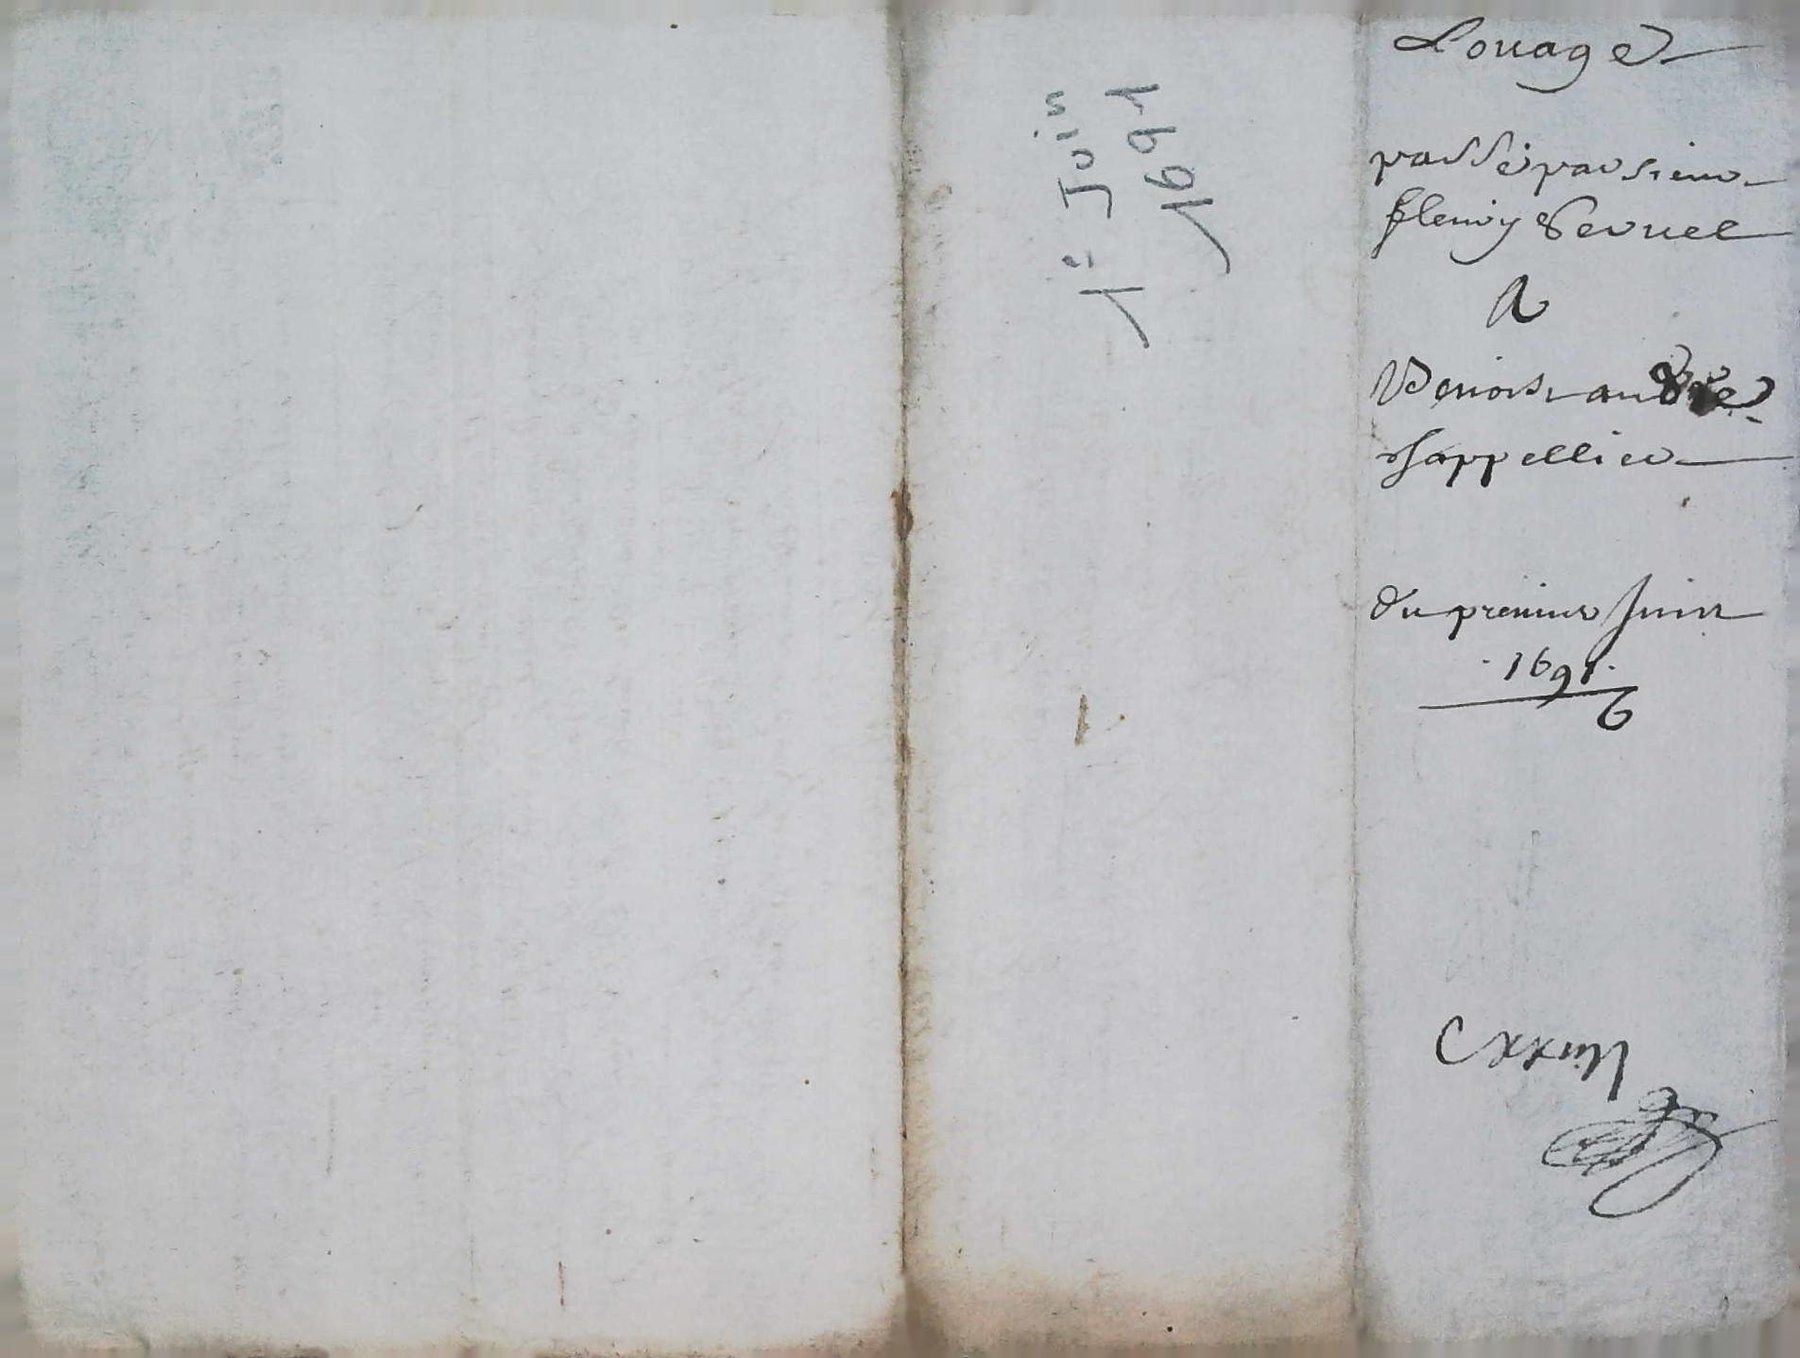 1e Juin
1691
Louage
passé par sieur
fleury
A
Benoist andré
chappellier
du premier Juin
1691